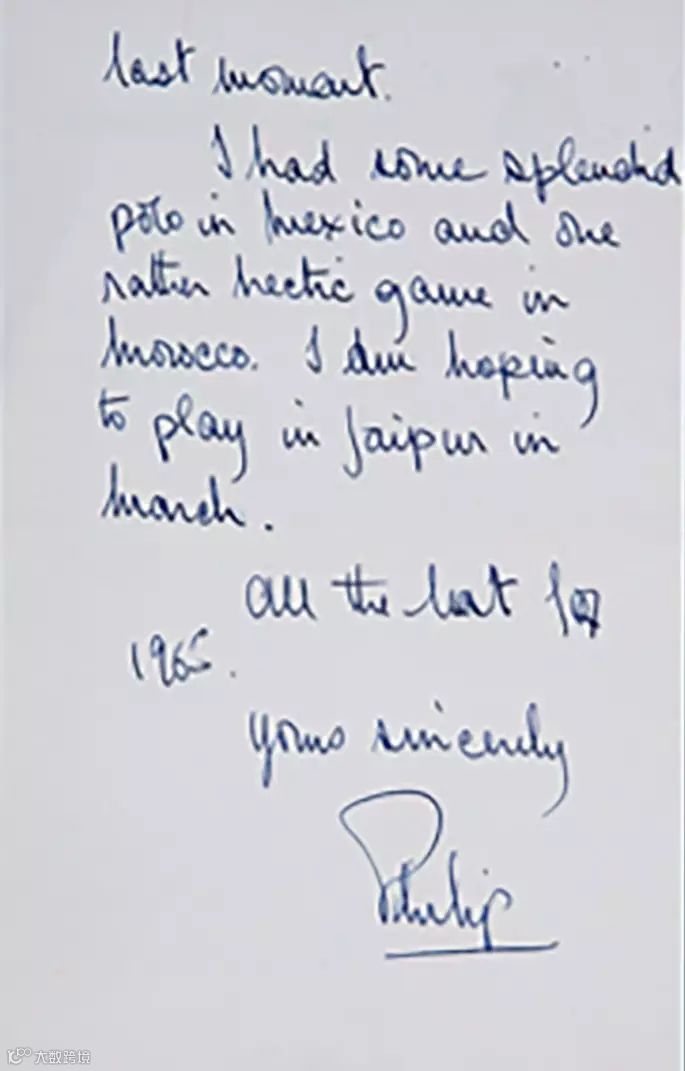 last moment.
I had some splendid
polo in Mexico and one
rather hectic game in
Morocco. I am hoping
to play in Jaipur in
March.
All the best for
1965.
Yours sincerely
Philip
大数跨境